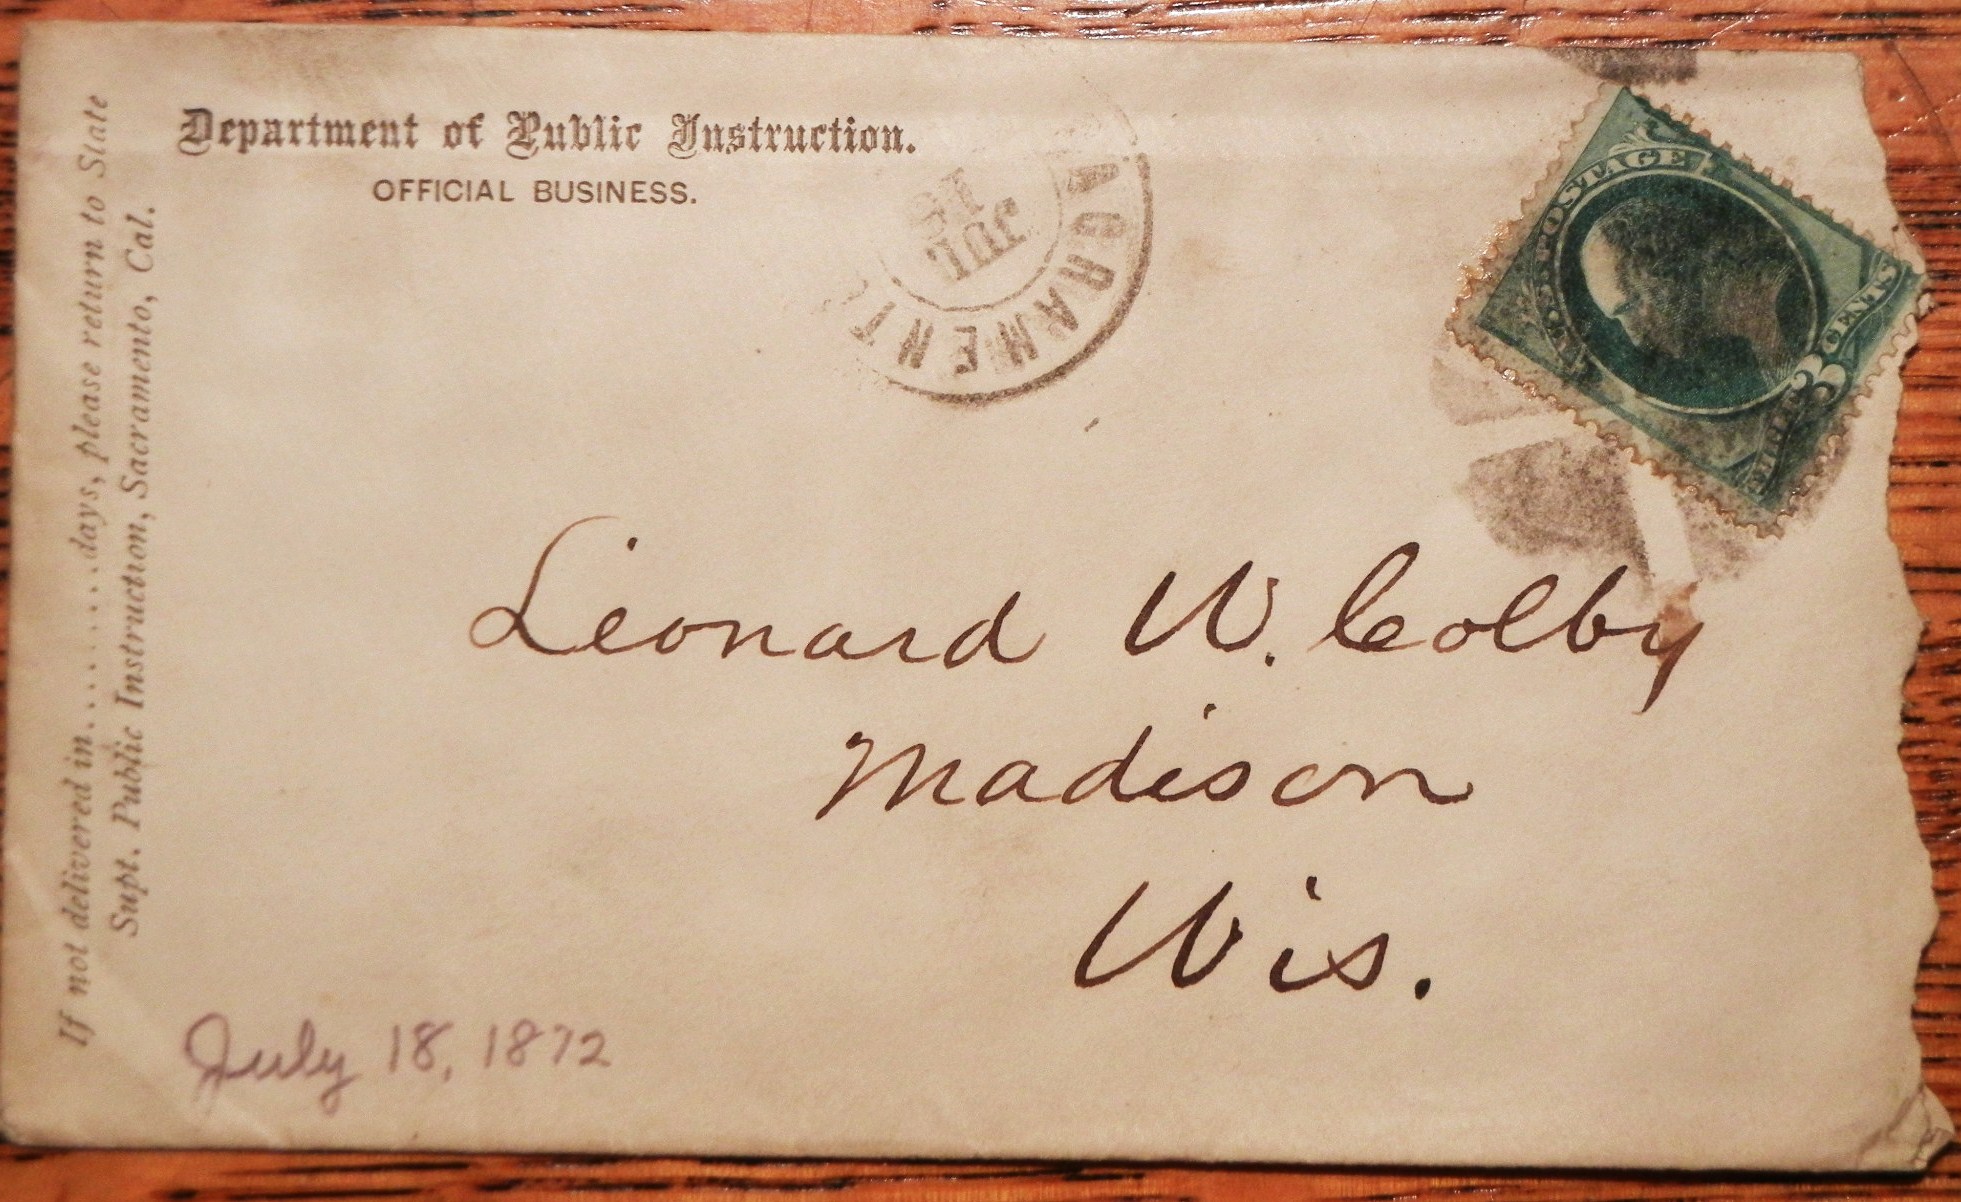 Department of Public Instruction.
OFFICIAL BUSINESS.
If not delivered in..........days, please return to State
Supt. Public Instruction, Sacramento, Cal.
ACRAMENT
JUL
U.S. POSTAGE
THREE 3 CENTS
Leonard W. Colby
Madison
Wis.
July 18, 1872